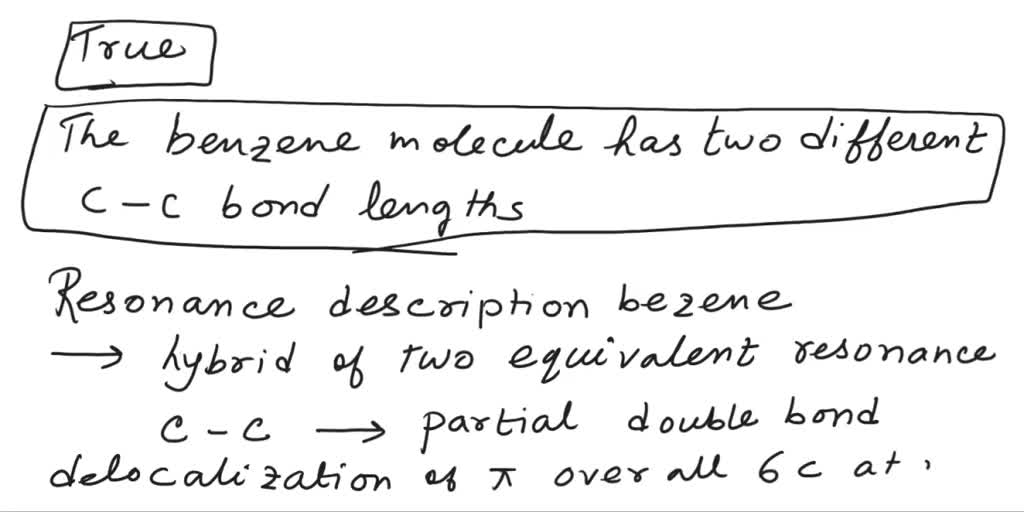 True
The benzene molecule has two different
C-C bond lengths
Resonance description bezene
→ hybrid of two equivalent resonance
C-C → partial double bond
delocalization of π over all 6 c at